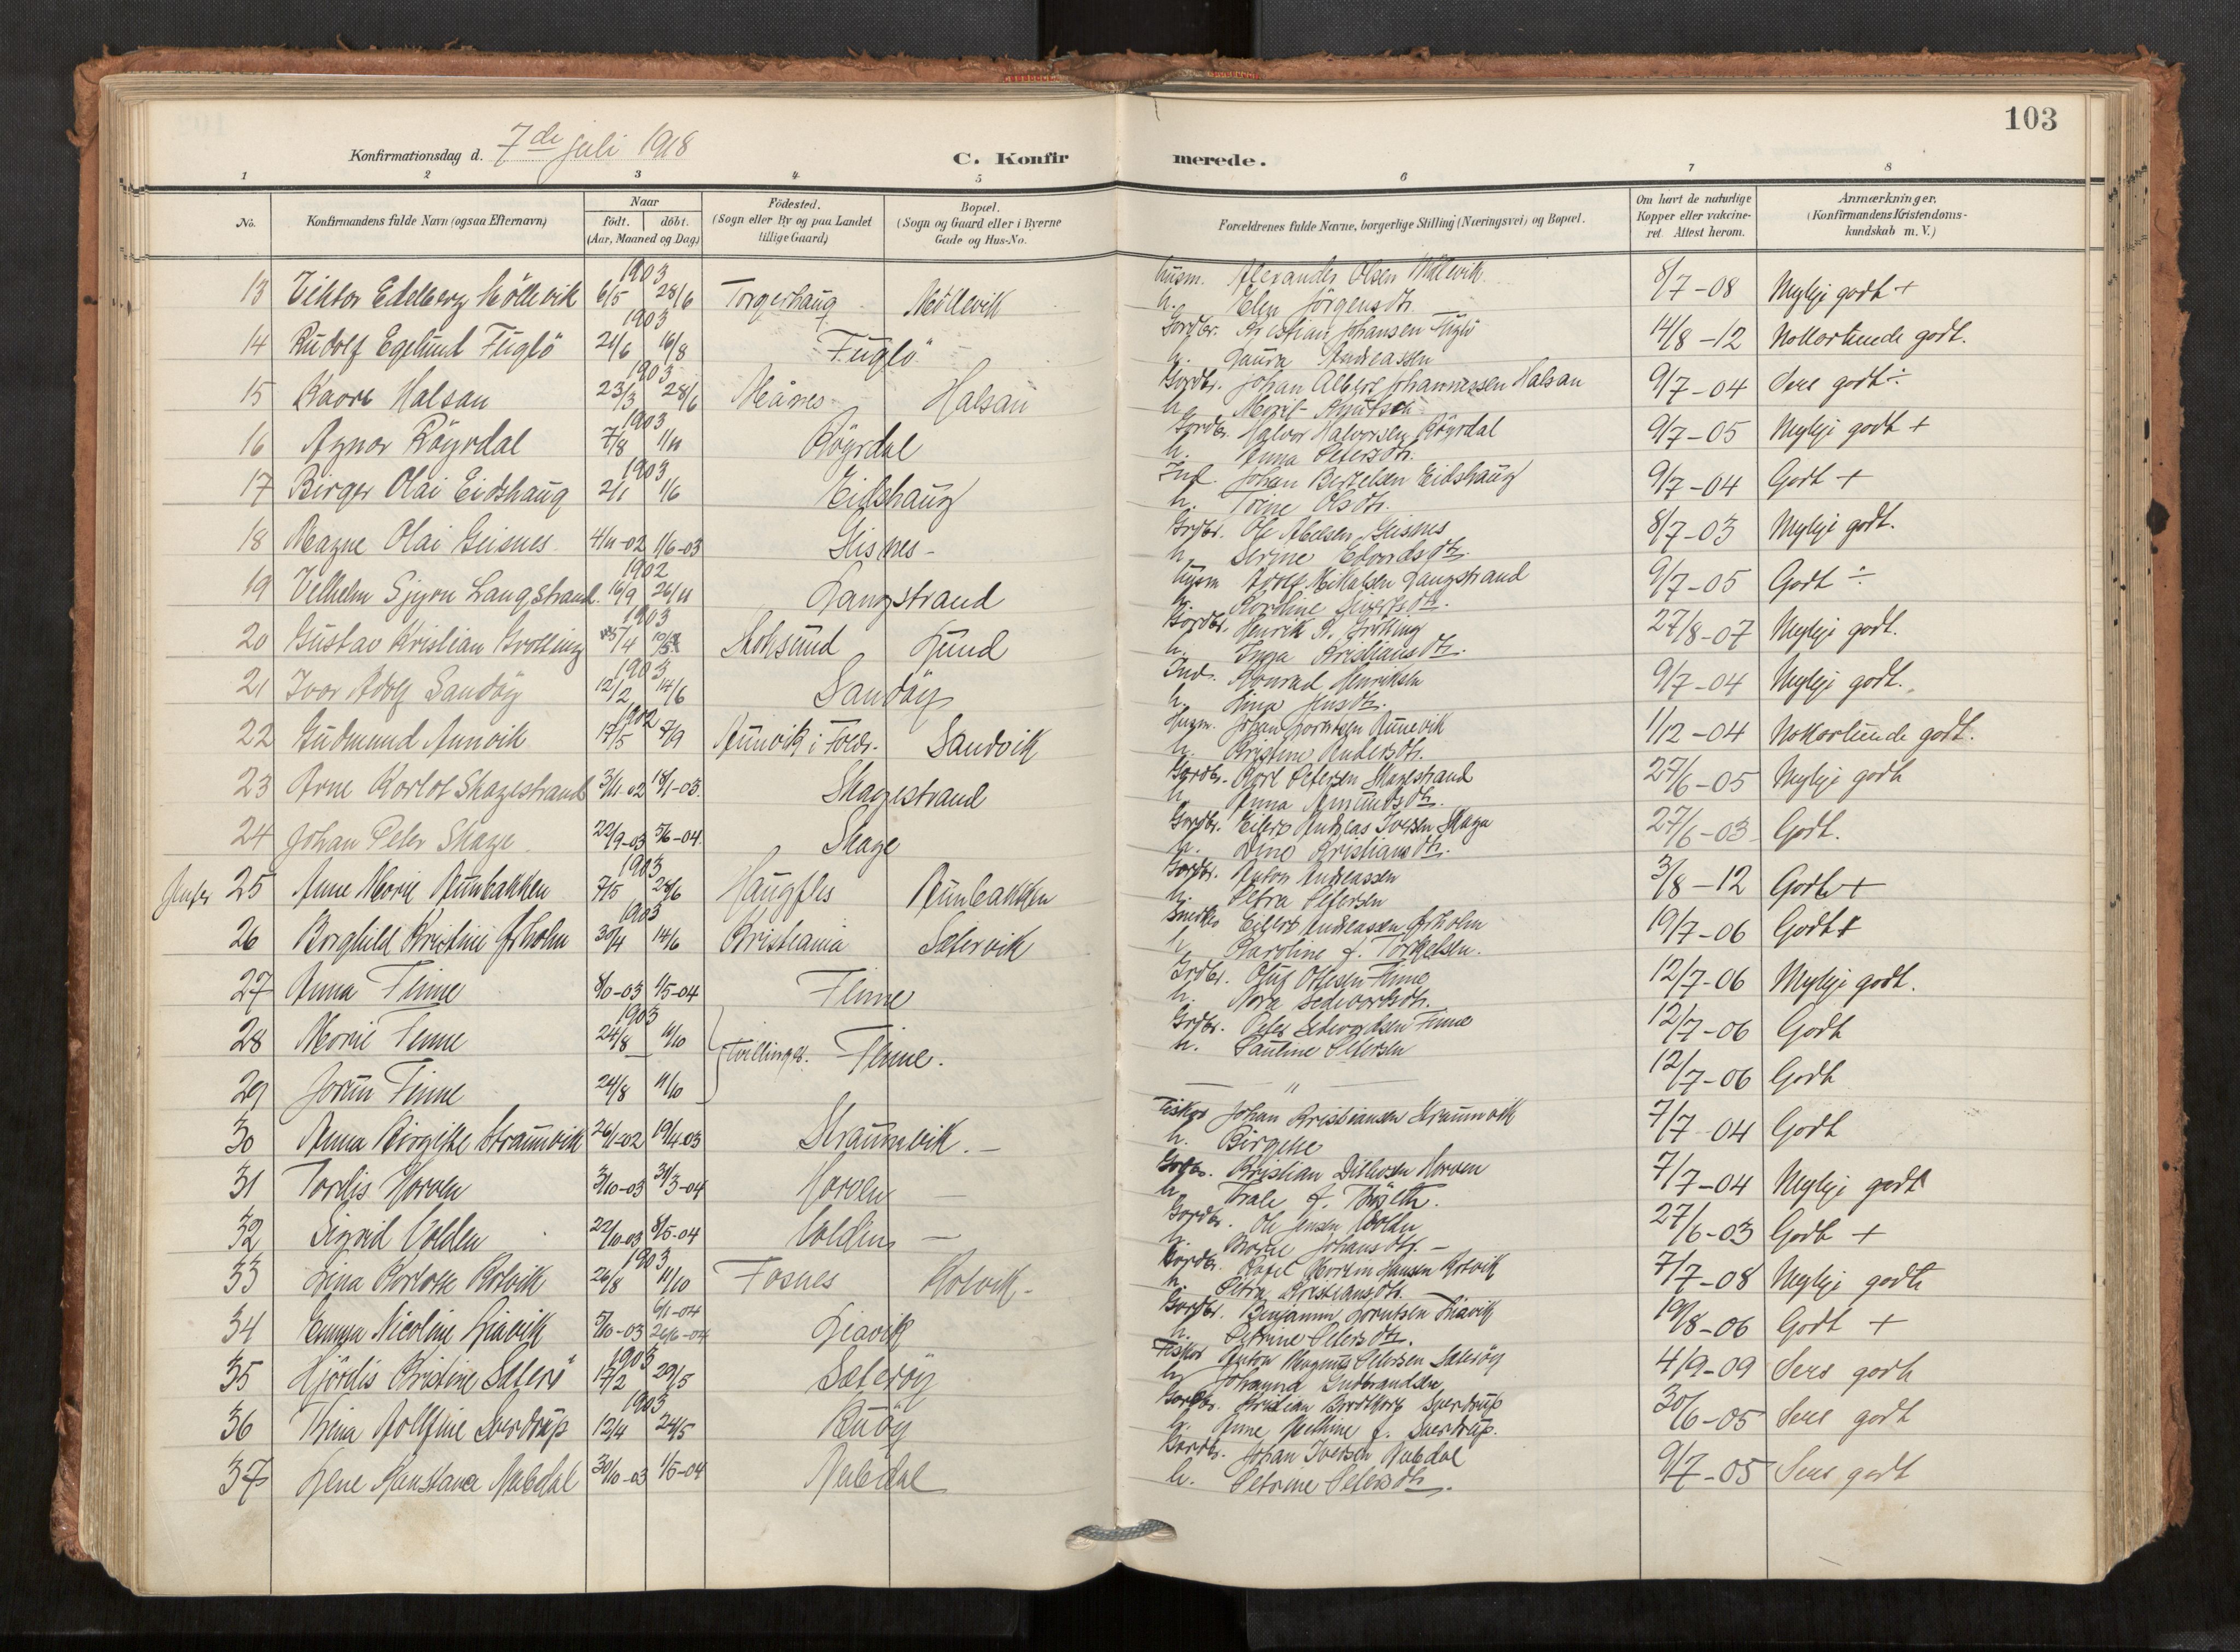 103
Konfirmationsdag d. 7de juli 1918
C. Konfirmerede.
1 2 3 4 5 6 7 8
No. Konfirmandens fulde Navn (ogsaa Efternavn) Naar født. døbt. (Aar, Maaned og Dag) Fødested. (Sogn eller By og paa Landet tillige Gaard) Bopæl. (Sogn og Gaard eller i Byerne Gade og Hus-No. Forældrenes fulde Navne, borgerlige Stilling (Næringsvei) og Bopæl. Om havt de naturlige Kopper eller vakcineret. Attest herom. Anmærkninger. (Konfirmandens Kristendomskundskab m. V.)
13 Viktor Edelberg Möllevik 1903 6/5 28/6 Torgerhaug Möllevik husm. Alexander Olsen Möllevik h. Elen Jörgensdtr. 8/7-08 Meget godt +
14 Rudolf Egelund Fuglö 1903 21/6 16/8 Fuglö Gordbr. Kristian Johansen Fuglö h. Laura Andreassen 14/8-12 Nokorlunde godt.
15 Kaare Halsan 1903 23/3 28/6 Halsan Gordbr. Johan Albert Johannessen Halsan h. 9/7-04 Sers godt ÷
16 Agnor Röyrdal 1903 7/8 1/11 Röyrdal Gordbr. Halvor Halvorsen Röyrdal h. Anna Petersdtr. 9/7-05 Mykje godt +
17 Birger Olai Eidshaug 1903 2/1 1/6 Eidshaug Ind. Johan Bertelsen Eidshaug h. Trine Olsdtr. 9/7-04 Godt +
18 Magne Olai Geisnes 4/11-02 1/6-03 Geisnes Grdbr. Ole Abelsen Geisnes h. Serine Edvardsdtr. 8/7-03 Mykje godt.
19 Vilhelm Langstrand 1902 16/9 26/11 Langstrand husm. Adolf Mikalsen Langstrand h. 9/7-05 Godt ÷
20 Gustav Kristian Grötting 1903 Lund Gordbr. Henrik A. Grötting h. Inga Kristiansdtr. 27/8-07 Mykje godt.
21 Ivar Adolf Sandöy 1903 12/2 14/6 Sandöy Ind. Konrad Henriksen h. Lina Jensdtr. 9/7-04 Mykje godt.
22 Gudmund Aunvik 1902 17/5 7/9 Aunvik i Foldr. Sandvik husm. Johan Lorntsen Aunevik h. Kristine Andersdtr. 1/12-04 Nokorlunde godt.
23 Arne Karlot Skagestrand 3/11-02 18/1-03 Skagestrand Gordbr. Karl Petersen Skagestrand h. Anna Amundsdtr. 27/6-05 Mykje godt
24 Johan Peter Skage 22/9-03 5/6-04 Skage Gordbr. Eilert Andreas Iversen Skage h. Kristiansdtr. 27/6-03 Godt.
Jenter 25 Anne Marie Aunbakken 1903 7/5 28/6 Haugfles Aunbakken Gordbr. Anton Andreassen h. Petra Petersen 3/8-12 Godt +
26 Borghild Kristine Arholm 1903 30/4 14/6 Kristiania Setervik Snedker Eilert Andreassen Arholm h. Karoline f. Torkelsen. 19/7-06 Godt +
27 Anna Finne 8/10-03 1/5-04 Finne Grdbr. Oluf Ottesen Finne h. Nora Edvardsdtr. 12/7-06 Mykje godt.
28 Marie Finne 1903 24/8 11/10 Tvillinger. Finne. Grdbr. Peter Edvardsen Finne h. Pauline Petersen 12/7-06 Godt
29 Jorun Finne 24/8 11/10 — " — 12/7-06 Godt
30 Anna Birgitte Straumvik 26/1-02 19/4-03 Straumvik. — Fisker Johan Kristiansen Straumvik h. Birgitte 7/7-04 Godt
31 Tordis Horven 3/10-03 31/3-04 Horven — Gordbr. Kristian Horven h. 7/7-04 Mykje godt
32 Sigrid Volden 22/10-03 8/5-04 Volden — Gordbr. Ole Jensen Volden h. Johansdtr. — 27/6-03 Godt +
33 Lina Karlotte Rotvik 1903 26/8 11/10 Fosnes Rotvik — Gordbr. Hansen Rotvik h. Petra Kristiansdtr. 7/7-08 Mykje godt
34 Emma Nicoline Liavik 5/10-03 6/1-04 26/6-04 Liavik Gordbr. Benjamin Lorntsen Liavik h. Petrine Petersdtr. 19/8-06 Godt +
35 Hjördis Kristine Seterö 1903 17/2 29/5 Seteröy Fisker Anton Magnus Petersen Seteröy h. Johanna Gudbrandsen 4/9-09 Sers godt
36 Rolfine Sverdrup 1903 12/4 24/5 Ruöy Gordbr. Kristian Sverdrup h. Anne f. Sverdrup. 30/6-05 Sers godt
37 Lene Konstance Nubdal 30/10-03 1/5-04 Nubdal Gordbr. Johan Iversen Nubdal h. Petrine Petersdtr. 9/7-05 Sers godt